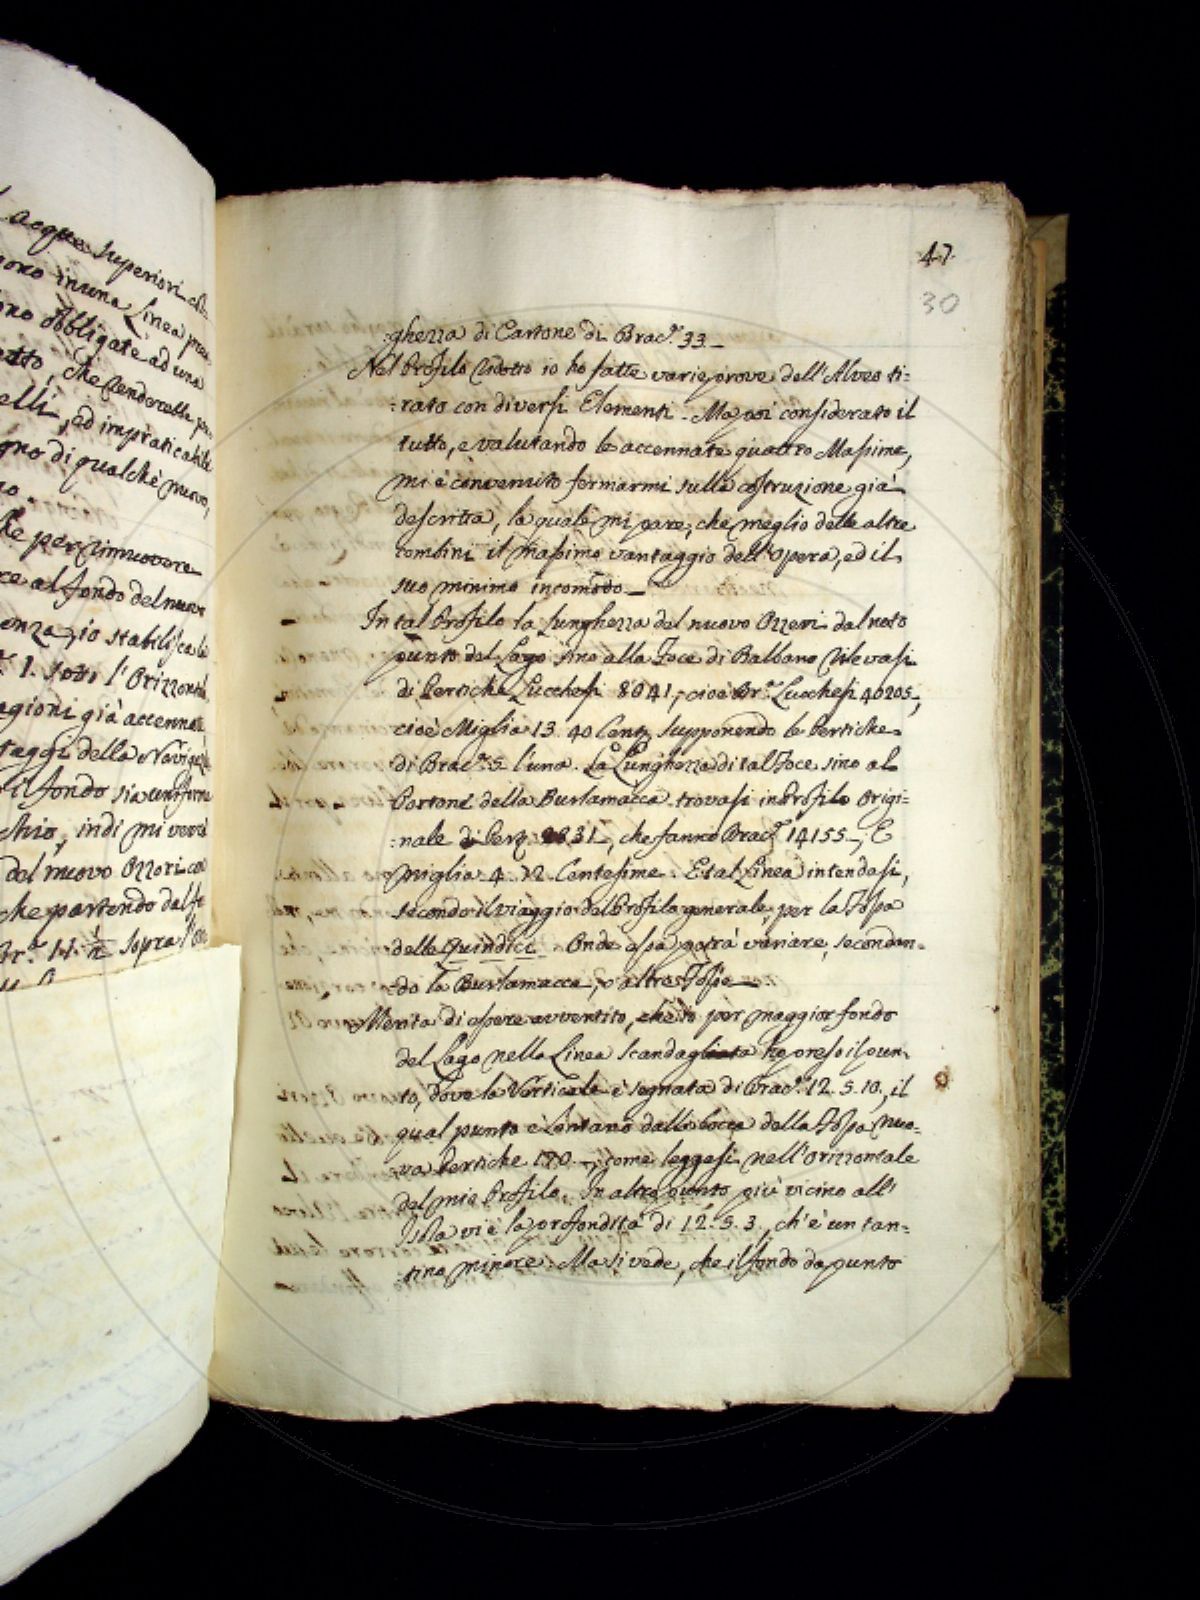 acque superiori
in una Linea
obbligate ad una
che renderelle
elli, ad impraticabile
gno di qualchè nuovo,
he per rimuovere
re al fondo del nuovo
enza, io stabilisca
1. sotto l'Orizzont
agioni già accennat
taggi della Navigaz
il fondo sia uniforme
chio, indi mi verrà
del nuovo Ozzeri
che partendo dal
sopra l'
47.
30
:ghezza di Cartone di Brac.ª 33.
Nel Profilo ridotto io ho fatte varie prove dell'Alveo ti:
:rato con diversi Elementi. Ma poi considerato il
tutto, e valutando le accennate quattro Massime,
mi è convenuto fermarmi sulla costruzione già
descritta, la quale mi pare, che meglio delle altre
combini il massimo vantaggio dell'opera, ed il
suo minimo incommodo.
In tal Profilo la Lunghezza del nuovo Ozzeri dal noto
punto del Lago sino alla Foce di Balbano rilevasi
di Pertiche Lucchesi 8041, cioè Br.ª Lucchesi 40205,
cioè Miglia 13. 40 Cent. supponendo le Pertiche
di Brac.ª 5 l'una. La Lunghezza di tal Foce sino al
Portone della Burlamacca trovasi in Profilo Origi:
:nale di Pert. 2831, che fanno Brac.ª 14155, E
miglia 4. 72 Centesime. E tal Linea intendasi,
secondo il viaggio del Profilo generale, per la Fossa
delle Quindici. Onde essa potrà variare, secondan:
:do la Burlamacca, o altre Fosse.
Merita di essere avvertito, che io per maggior fondo
del Lago nella Linea scandagliata ho preso il pun:
:to, dove la Verticale è segnata di Brac.ª 12. 5. 10., il
qual punto è lontano dalla bocca della Fossa Nuo:
:va Pertiche 170, come leggesi nell'orizzontale
del mio Profilo. In altro punto più vicino all'
Isola vi è la profondità di 12. 5. 3., ch'è un tan:
:tino minore. Ma si vede, che il fondo da punto